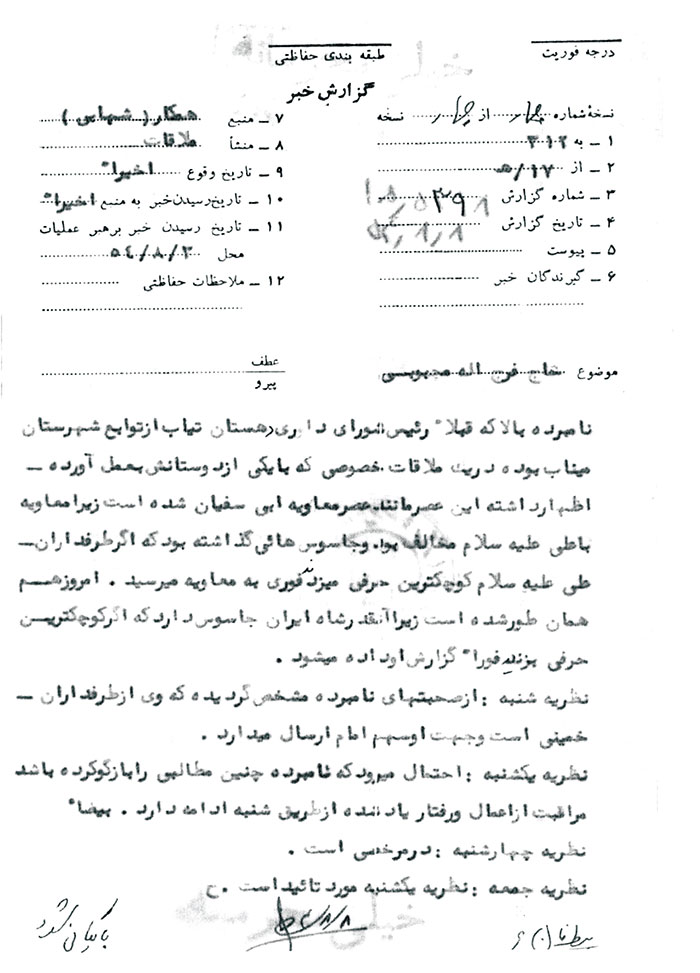 درجه فوریت
طبقه بندی حفاظتی
گزارش خبر
نسخهٔ شماره چهار از چهار نسخه
۱ ـ به ۳۱۲
۲ ـ از ۱۷/ه
۳ ـ شماره گزارش
۴ ـ تاریخ گزارش
۵ ـ پیوست
۶ ـ گیرندگان خبر
۷ ـ منبع همکار (شهابی)
۸ ـ منشأ ملاقات
۹ ـ تاریخ وقوع اخیراً
۱۰ ـ تاریخ رسیدن خبر به منبع اخیراً
۱۱ ـ تاریخ رسیدن خبر برهبر عملیات
محل ۵۴/۸/۳
۱۲ ـ ملاحظات حفاظتی
موضوع حاج فرج اله
عطف
پیرو
نامبرده بالا که قبلاً رئیس شورای داوری دهستان تیاب از توابع شهرستان
میناب بوده در یک ملاقات خصوصی که با یکی از دوستانش بعمل آورده ـ
اظهار داشته این عصر مانند عصر معاویه ابی سفیان شده است زیرا معاویه
با علی علیه سلام مخالف بود و جاسوس هائی گذاشته بود که اگر طرفداران ـ
علی علیه سلام کوچکترین حرفی میزدند فوری به معاویه میرسید . امروز هم
همان طور شده است زیرا آنقدر شاه ایران جاسوس دارد که اگر کوچکترین
حرفی بزنید فوراً گزارش او داده میشود .
نظریه شنبه : از صحبتهای نامبرده مشخص گردیده که وی از طرفداران ـ
خمینی است و جهت او سهم امام ارسال میدارد .
نظریه یکشنبه : احتمال میرود که نامبرده چنین مطالبی را بازگو کرده باشد
مراقبت از اعمال و رفتار یاد شده از طریق شنبه ادامه دارد . بیضاً
نظریه چهارشنبه : در مرخصی است .
نظریه جمعه : نظریه یکشنبه مورد تائید است . ح
بایگانی شود